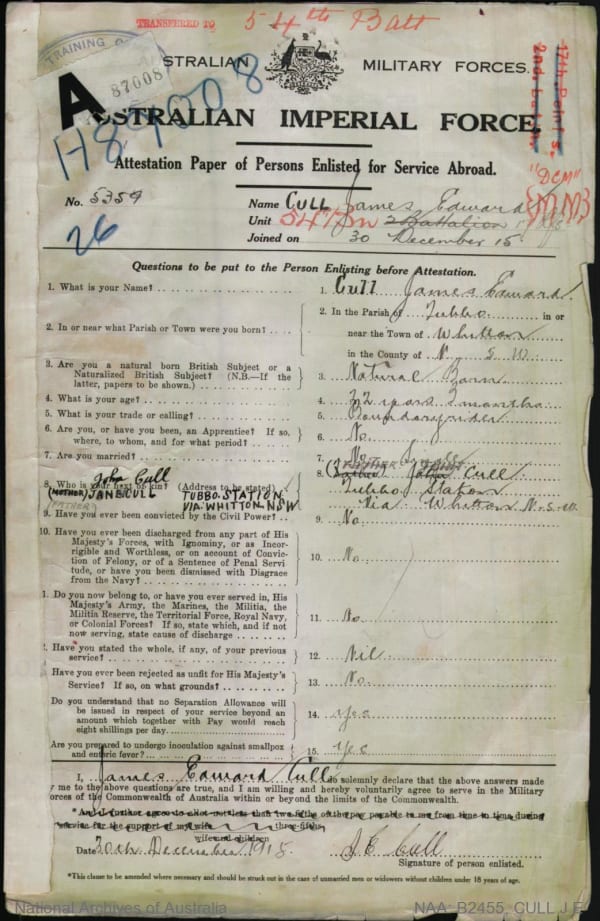 TRANSFERED TO 54th Batt
TRAINING
87008
A
H87008
AUSTRALIAN MILITARY FORCES.
17th Reinf's.
2nd Battn
AUSTRALIAN IMPERIAL FORCE.
Attestation Paper of Persons Enlisted for Service Abroad.
"DCM"
MM
No. 5359
Name CULL James Edward
Unit 54TH Bn 2 Battalion
Joined on 30 December 15
26
Questions to be put to the Person Enlisting before Attestation.
1. What is your Name? 1. Cull James Edward.
2. In or near what Parish or Town were you born? 2. In the Parish of Tubbo in or
near the Town of Whitton
in the County of N. S. W.
3. Are you a natural born British Subject or a
Naturalized British Subject? (N.B.—If the
latter, papers to be shown.) 3. Natural Born
4. What is your age? 4. 22 years 3 months
5. What is your trade or calling? 5. Boundary rider
6. Are you, or have you been, an Apprentice? If so,
where, to whom, and for what period? 6. No.
7. Are you married? 7. No
John Cull
8. Who is your next of kin? (Address to be stated) 8. Cull
(MOTHER) JANE CULL TUBBO STATION Tubbo Station
(FATHER) VIA WHITTON NSW Via Whitton N.S.W.
9. Have you ever been convicted by the Civil Power? 9. No.
10. Have you ever been discharged from any part of His
Majesty's Forces, with Ignominy, or as Incor-
rigible and Worthless, or on account of Convic-
tion of Felony, or of a Sentence of Penal Servi-
tude, or have you been dismissed with Disgrace
from the Navy? 10. No.
1. Do you now belong to, or have you ever served in, His
Majesty's Army, the Marines, the Militia, the
Militia Reserve, the Territorial Force, Royal Navy,
or Colonial Forces? If so, state which, and if not
now serving, state cause of discharge 11. No
2. Have you stated the whole, if any, of your previous
service? 12. Nil
Have you ever been rejected as unfit for His Majesty's
Service? If so, on what grounds? 13. No.
Do you understand that no Separation Allowance will
be issued in respect of your service beyond an
amount which together with Pay would reach
eight shillings per day. 14. yes
Are you prepared to undergo inoculation against smallpox
and enteric fever? 15. yes
I, James Edward Cull do solemnly declare that the above answers made
by me to the above questions are true, and I am willing and hereby voluntarily agree to serve in the Military
Forces of the Commonwealth of Australia within or beyond the limits of the Commonwealth.
*And I further agree to allot not less than two-fifths of the pay payable to me from time to time during
service for the support of my wife
three-fifths
wife and children
Date 30th December 1915 J E Cull
Signature of person enlisted.
*This clause to be amended where necessary and should be struck out in the case of unmarried men or widowers without children under 18 years of age.
National Archives of Australia NAA: B2455, CULL J E